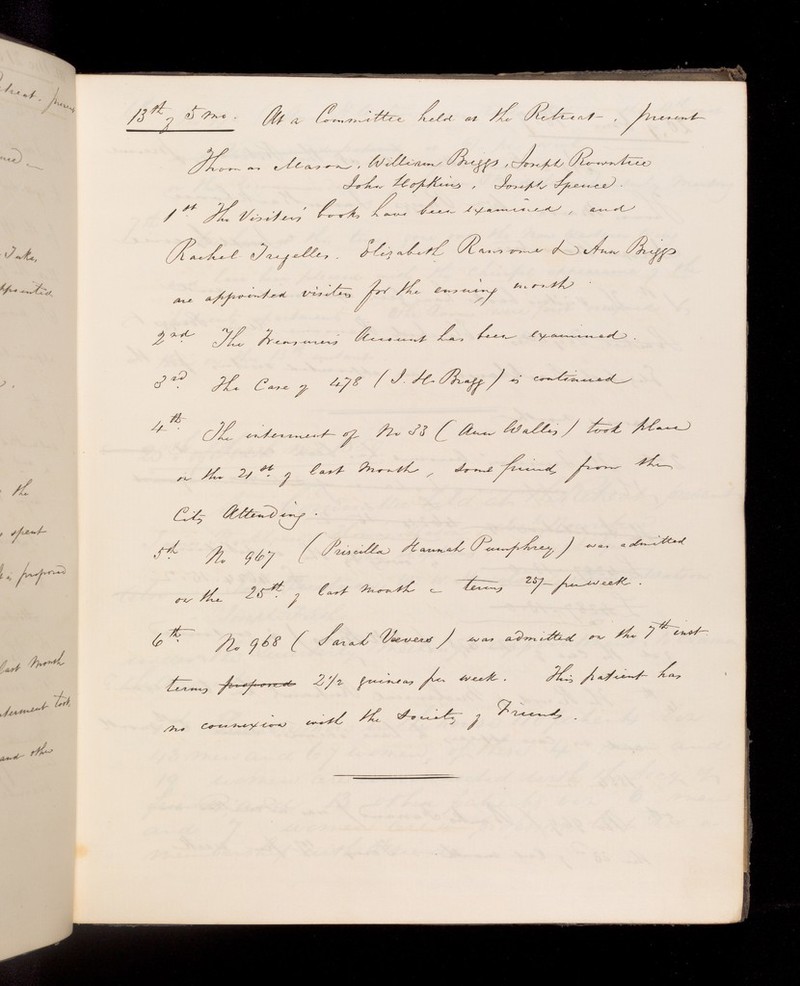 13th of 5 mo. At a Committee held at the Retreat, present
Thomas Mason, William Briggs, Joseph Rowntree
John Hopkins, Joseph Spence.
1st The Visitors' books have been examined, and
Rachel Tregelles. Elizabeth Ransome & Ann Briggs
are appointed visitors for the ensuing month
2nd The Treasurers Account has been examined.
3rd. The Case of 478 (J. H. Bragg) is continued
4th. The interment of No 33 (Ann Wallis) took place
on the 21st. of last Month, some friends from the
City Attending.
5th No 967 (Priscilla Hannah Pumphrey) was admitted
on the 25th. of last month – terms 25/- per week.
6th. No 968 (Sarah) was admitted on the 7th inst
terms proposed 2½ guineas per week. This patient has
no connexion with the Society of Friends.
Retreat. present
Takes
appointed
the
spent
proposed
last Month
interment took
and other